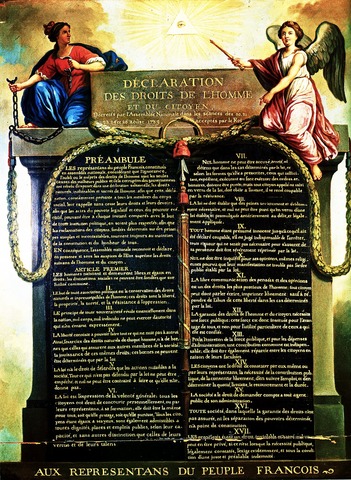 DÉCLARATION
DES DROITS DE L'HOMME
ET DU CITOYEN,
Décrétés par l'Assemblée Nationale dans les séances des 20, 21
acceptés par le Roi
PRÉAMBULE
LES représentans du peuple François, constitués
en assemblée nationale, considérant que l'ignorance,
l'oubli ou le mépris des droits de l'homme sont les seules
causes des malheurs publics et de la corruption des gouvernemens
ont résolu d'exposer dans une déclaration solemnelle, les droits
naturels, inaliénables et sacrés de l'homme; afin que cette décla-
ration, constamment présente à tous les membres du corps
social, leur rappelle sans cesse leurs droits et leurs devoirs;
afin que les actes du pouvoir législatif et ceux du pouvoir exé-
cutif, pouvant être à chaque instant comparés avec le but
de toute institution politique, en soient plus respectés; afin que
les réclamations des citoyens, fondées désormais sur des princi-
pes simples et incontestables, tournent toujours au maintien
de la constitution et du bonheur de tous.
EN conséquence, l'assemblée nationale reconnoit et déclare,
en présence et sous les auspices de l'Etre suprême les droits
suivans de l'homme et du citoyen.
ARTICLE PREMIER.
LES hommes naissent et demeurent libres et égaux en
droits, les distinctions sociales ne peuvent être fondées que sur
l'utilité commune.
II.
LE but de toute association politique est la conservation des droits
naturels et imprescriptibles de l'homme; ces droits sont la liberté,
la propriété, la sureté, et la résistance à l'oppression.
III.
LE principe de toute souveraineté réside essentiellement dans
la nation, nul corps, nul individu ne peut exercer d'autorité
qui n'en émane expressément.
IV.
LA liberté consiste à pouvoir faire tout ce qui ne nuit pas à autrui
Ainsi, l'exercice des droits naturels de chaque homme, n'a de bor-
nes que celles qui assurent aux autres membres de la société
la jouissance de ces mêmes droits; ces bornes ne peuvent
être déterminées que par la loi.
V.
LA loi n'a le droit de défendre que les actions nuisibles à la
société. Tout ce qui n'est pas défendu par la loi ne peut être
empêché, et nul ne peut être contraint à faire ce qu'elle n'or-
donne pas.
VI.
LA loi est l'expression de la volonté générale; tous les
citoyens ont droit de concourir personnellement, ou par
leurs représentans, à sa formation; elle doit être la même
pour tous, soit qu'elle protege, soit qu'elle punisse. Tous les cito-
yens étant égaux à ses yeux, sont également admissibles à
toutes dignités, places et emplois publics, selon leur ca-
pacité, et sans autres distinction que celles de leurs
vertus et de leurs talens.
VII.
NUL homme ne peut être accusé, arrêté, ni
détenu que dans les cas déterminés par la loi, et
selon les formes qu'elle a prescrites, ceux qui solli-
citent, expédient, exécutent ou font exécuter des ordres ar-
bitraires, doivent être punis; mais tout citoyen appelé ou saisi
en vertu de la loi, doit obéir à l'instant, il se rend coupable
par la résistance.
VIII.
LA loi ne doit établir que des peines strictement et évidem-
ment nécessaires, et nul ne peut être puni qu'en vertu d'une
loi établie et promulguée antérieurement au délit, et légale-
ment appliquée.
IX.
TOUT homme étant présumé innocent jusqu'à ce qu'il ait
été déclaré coupable, s'il est jugé indispensable de l'arrêter,
toute rigueur qui ne seroit pas nécessaire pour s'assurer de
sa personne doit être sévèrement réprimée par la loi.
X.
NUL ne doit être inquiété pour ses opinions, mêmes religi-
euses pourvu que leur manifestation ne trouble pas l'ordre
public établi par la loi.
XI.
LA libre communication des pensées et des opinions est
un des droits les plus précieux de l'homme; tout citoyen
peut donc parler, écrire, imprimer librement, sauf à ré-
pondre de l'abus de cette liberté dans les cas déterminés
par la loi.
XII.
LA garantie des droits de l'homme et du citoyen nécessite
une force publique; cette force est donc instituée pour l'avan-
tage de tous, et non pour l'utilité particuliere de ceux à qui
elle est confiée.
XIII.
POUR l'entretien de la force publique, et pour les dépenses
d'administration, une contribution commune est indispen-
sable; elle doit être également répartie entre les citoyens en
raison de leurs facultés.
XIV.
LES citoyens ont le droit de constater par eux même ou
par leurs représentans, la nécessité de la contribution pu-
blique, de la consentir librement, d'en suivre l'emploi, et d'en
déterminer la quotité, l'assiette, le recouvrement et la durée.
XV.
LA société a le droit de demander compte à tout agent
public de son administration.
XVI.
TOUTE société, dans laquelle la garantie des droits n'est
pas assurée, ni la séparation des pouvoirs déterminée,
n'a point de constitution.
XVII.
LES propriétés étant un droit inviolable et sacré, nul ne
peut en être privé, si ce n'est lorsque la nécessité publique,
légalement constatée, l'exige évidemment, et sous la condi-
tion d'une juste et préalable indemnité.
AUX REPRESENTANS DU PEUPLE FRANCOIS